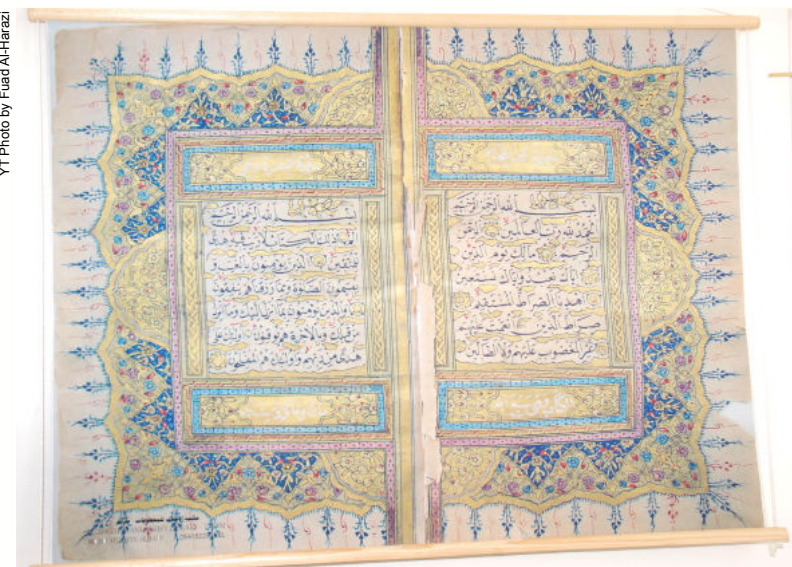 بسم الله الرحمن الرحيم
الحمد لله رب العالمين الرحمن
الرحيم مالك يوم الدين
إياك نعبد وإياك نستعين
اهدنا الصراط المستقيم
صراط الذين أنعمت عليهم
غير المغضوب عليهم ولا الضالين
بسم الله الرحمن الرحيم
الم ذلك الكتاب لا ريب فيه هدى
للمتقين الذين يؤمنون بالغيب و
يقيمون الصلوة ومما رزقناهم ينفقون
والذين يؤمنون بما أنزل إليك وما أنزل
من قبلك وبالآخرة هم يوقنون أولئك على
هدى من ربهم وأولئك هم المفلحون
YT Photo by Fuad Al-Harazi